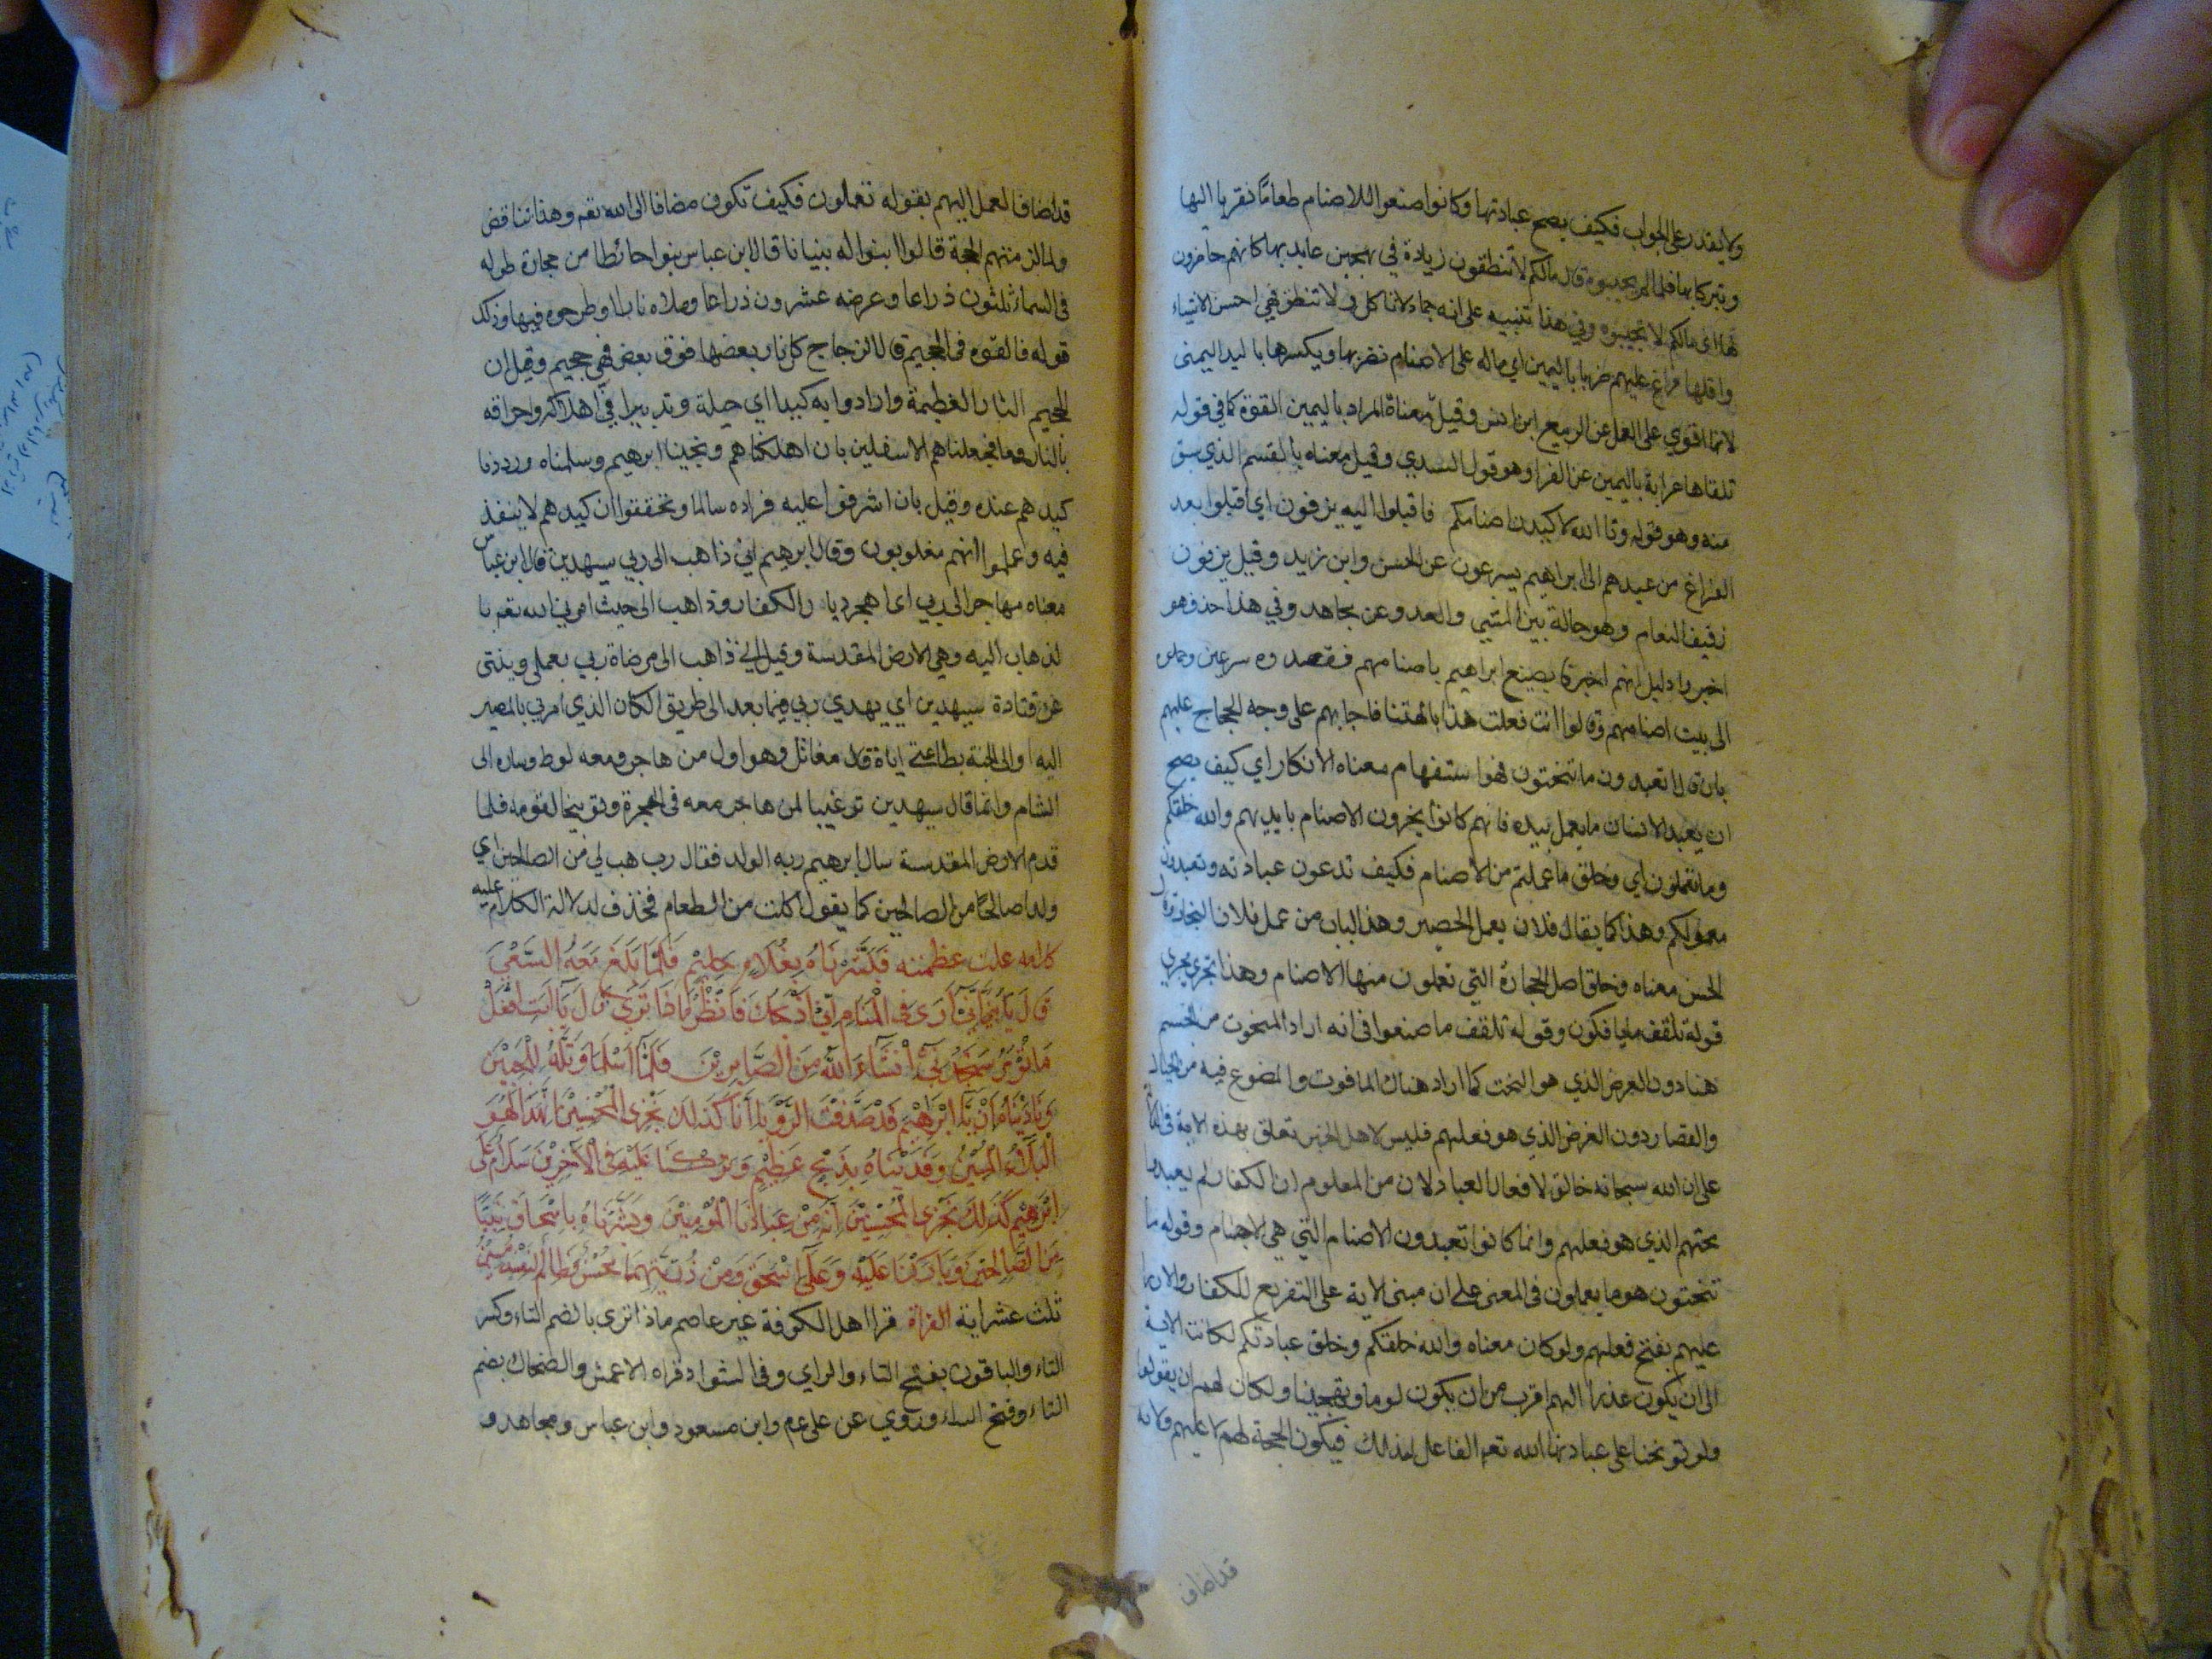 ولا يقدر على الجواب فكيف يصح عبادتها وكانوا صنعوا للاصنام طعاما تقربا اليها
وتبركا بها فلما لم يجيبوه قال مالكم لا تنطقون زيادة في تهجين عابديها كانهم حاضرون
لها اى مالكم لا تجيبوه وفي هذا تنبيه على انه جماد لان كل من لا تنطق فهي احسن الاشياء
واقلها فراغ عليهم ضربا باليمين اي مال على الاصنام يضربها ويكسرها باليد اليمنى
لانها اقوي على العمل عن الربيع ابن انس وقيل معناه المراد باليمين القوة كما في قوله
تلقاها عرابة باليمين عن الفرا وهو قول السدي وقيل معناه بالقسم الذي سبق
منه وهو قوله وتا الله لاكيدن اصنامكم فاقبلوا اليه يزفون اي اقبلوا بعد
الفراغ من عيدهم الى ابراهيم يسرعون عن الحسن وابن زيد وقيل يزفون
زفيف النعام وهو حالة بين المشي والعدو عن مجاهد وفي هذا حذف هو
اخبروا دليل انهم اخبروا بصنع ابراهيم باصنامهم فقصدوه مسرعين وحملوه
الى بيت اصنامهم وقالوا انت فعلت هذا بالهتنا فاجابهم على وجه الحجاج عليهم
بان قال اتعبدون ما تنحتون فهو استفهام معناه الانكار اي كيف يصح
ان يعبد الانسان ما يعمل بيده فانهم كانوا ينحرون الاصنام بايديهم والله خلقكم
وما تعملون اي وخلق ما عملتم من الاصنام فكيف تدعون عبادته وتعبدون
معمولكم وهذا كما يقال فلان يعمل الحصير وهذا الباب من عمل فلان النجار قال
الحسن معناه وخلق اصل الحجارة التي تعملون منها الاصنام وهذا تجري مجري
قوله تلقف ما يافكون وقوله تلقف ما صنعوا في انه اراد المنحوت من الجسم
هنا دون العرض الذي هو النحت كما اراد هناك المافوت والمصنوع فيه من الحبال
والعصا دون العرض الذي هو فعلهم فليس لاهل الجبر تعلق بهذه الاية في الدلالة
على ان الله سبحانه خالق لافعال العباد لان من المعلوم ان الكفار لم يعبدوا
نحتهم الذي هو فعلهم وانما كانوا تعبدون الاصنام التي هي الاجسام وقوله ما
تنحتون هو ما يعملون في المعنى على ان مبنى الاية على التقريع للكفار والازراء
عليهم بقبح فعلهم ولو كان معناه والله خلقكم وخلق عبادتكم لكانت الاية
الى ان يكون عذرا الهم اقرب من ان يكون لوما وتهجينا ولكان لهم ان يقولوا
ولم توبخنا على عبادتها الله تعم الفاعل لذلك فيكون الحجة لهم لا عليهم ولانه
قد اضاف
قد اضاف العمل اليهم بقوله تعملون فكيف تكون مضافا الى الله تعم وهذا تناقض
ولما لزمتهم الحجة قالوا ابنوا له بنيانا قال ابن عباس بنوا حائطا من حجارة طوله
في السماء ثلثون ذراعا وعرضه عشرون ذراعا وملاه نارا وطرحوه فيها وذلك
قوله فالقوه في الجحيم قال الزجاج كل نار بعضها فوق بعض فهي جحيم وقيل ان
الجحيم النار العظيمة وارادوا به كيدا اي حيلة وتدبيرا في اهلاكه واحراقه
بالنار فجعلناهم الاسفلين بان اهلكناهم ونجينا ابرهيم وسلمناه ورددنا
كيدهم عنه وقيل بان اشرفوا عليه فراوه سالما وتحققوا ان كيدهم لا ينفذ
فيه وعملوا انهم مغلوبون وقال ابرهيم اني ذاهب الى ربي سيهدين قال ابن عباس
معناه مهاجر الى ربي اى اهجر ديار الكفار وذاهب الى حيث امرني الله تعم با
لذهاب اليه وهي الارض المقدسة وقيل اني ذاهب الى مرضاة ربي بعملي ونيتي
عن قتادة سيهدين اي يهدي ربي فيما بعد الى طريق المكان الذي امرني بالمصير
اليه او الى الجنة بطاعتي اياه قال مقاتل وهو اول من هاجر ومعه لوط وساره الى
الشام وانما قال سيهدين ترغيبا لمن هاجر معه في الهجرة وتوبيخا لقومه فلما
قدم الارض المقدسة سال ابرهيم ربه الولد فقال رب هب لي من الصالحين اي
ولدا صالحا من الصالحين كما يقول اكلت من الطعام فحذف لدلالة الكلام عليه
كلامه علت عظمته فَبَشَّرْنَاهُ بِغُلَامٍ حَلِيْمٍ فَلَمَّا بَلَغَ مَعَهُ السَّعْيَ
قَالَ يَا بُنَيَّ اِنِّي اَرَى فِي الْمَنَامِ اَنِّي اَذْبَحُكَ فَانْظُرْ مَا ذَا تَرَي قَالَ يَا اَبَتِ افْعَلْ
مَا تُؤْمَرُ سَتَجِدُنِي اِنْ شَآءَ اللَّهُ مِنَ الصَّابِرِيْنَ فَلَمَّا اَسْلَمَا وَتَلَّهُ لِلْجَبِيْنِ
وَنَادَيْنَاهُ اَنْ يَا اِبْرَهِيْمُ قَدْ صَدَّقْتَ الرُّؤْيَا اِنَّا كَذَلِكَ نَجْزِي الْمُحْسِنِيْنَ اِنَّ هَذَا لَهُوَ
الْبَلَاءُ الْمُبِيْنُ وَفَدَيْنَاهُ بِذِبْحٍ عَظِيْمٍ وَتَرَكْنَا عَلَيْهِ فِي الْآخِرِيْنَ سَلَامٌ عَلَى
اِبْرَهِيْمَ كَذَلِكَ نَجْزِي الْمُحْسِنِيْنَ اِنَّهُ مِنْ عِبَادِنَا الْمُؤْمِنِيْنَ وَبَشَّرْنَاهُ بِاِسْحَاقَ نَبِيًّا
مِنَ الصَّالِحِيْنَ وَبَارَكْنَا عَلَيْهِ وَعَلَى اِسْحَقَ وَمِنْ ذُرِّيَّتِهِمَا مُحْسِنٌ وَظَالِمٌ لِنَفْسِهِ مُبِيْنٌ
ثلث عشر اية القراة قرا اهل الكوفة غير عاصم ماذا ترى بالضم التاء وكسر
التاء والباقون بفتح التاء والراي وفي الشواد قراه الاعمش والضحاك بضم
التاء وفتح الراء وروي عن على عم وابن مسعود وابن عباس ومجاهد و